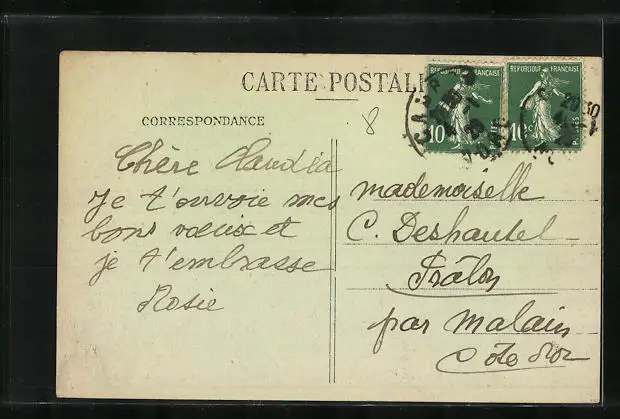 CARTE POSTALE
REPUBLIQUE FRANÇAISE
10 c
REPUBLIQUE FRANÇAISE
10 c
20 30
CORRESPONDANCE
8
Chère Claudia
Je t'envoie mes
bons vœux et
je t'embrasse
Rosie
mademoiselle
C. Deshautel
Prâlon
par Malain
Côte d'or